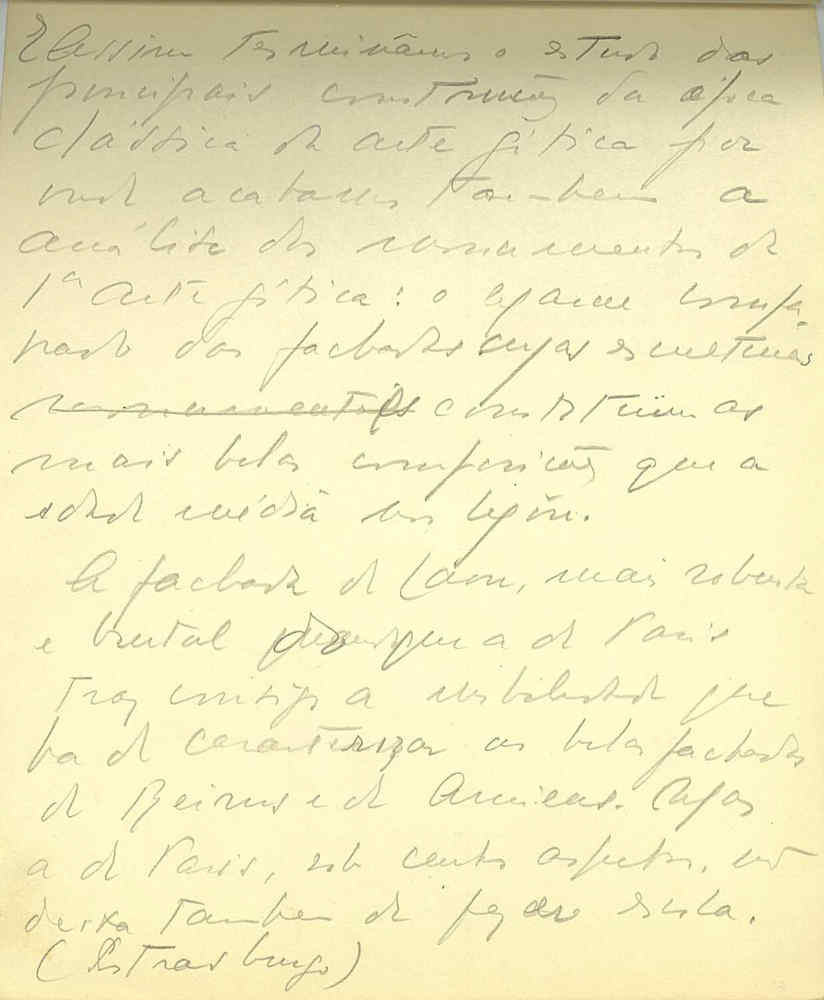 E assim terminâmos o estudo das
principais construções da época
clássica da arte gótica por
onde acabamos tam-bem a
análise dos monumentos da
1ª arte gótica: o exame compa-
rado das fachadas cujas esculturas
monumentais constituem as
mais belas composições que a
edade média nos legou.
A fachada de Laon, mais robusta
e brutal do que a de Paris
traz consigo a nobilidade que
ha de caracterizar as belas fachadas
de Reims e de Amiens. Mas
a de Paris, sob certos aspectos, não
deixa tambem de fazer escola.
(Estrasburgo)